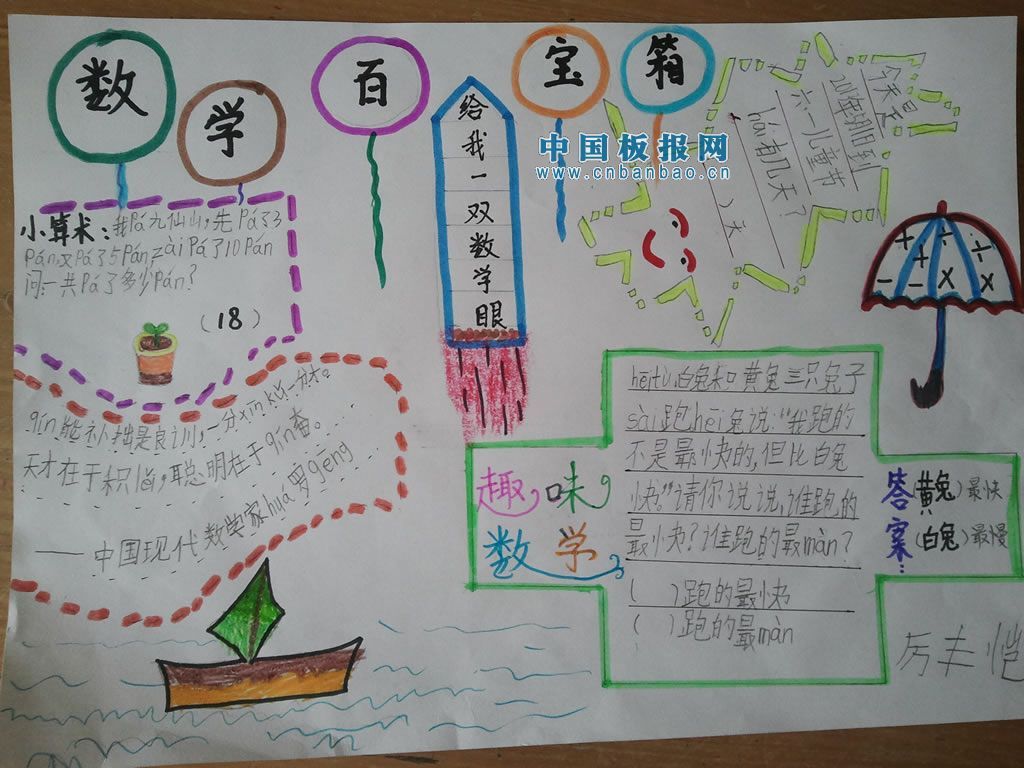 数学百宝箱
给我一双数学眼
中国板报网
www.cnbanbao.cn
今天是
六一儿童节
hái有几天?
)天
小算术:我Pá九仙山,先Pá了3
Pán,又Pá了5Pán,zài Pá了10Pán
问一共Pá了多少Pán?
(18)
qín能补拙是良训,一分xīn kǔ一分才。
天才在于积lěi,聪明在于qín奋。
——中国现代数学家huà罗gēng
+ ÷ + × - - × ×
趣味
数学
hēi tù,白兔和黄兔三只兔子
sài跑hēi兔说:“我跑的
不是最快的,但比白兔
快。”请你说说,谁跑的
最快?谁跑的最màn?
( )跑的最快
( )跑的最màn
答案:
(黄兔)最快
(白兔)最慢
厉丰恺